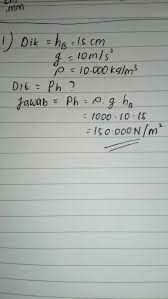 mm
1) Dik = hB = 15 cm
g = 10 m/s²
ρ = 10.000 kg/m³
Dit = Ph ?
Jawab = Ph = ρ . g . hB
= 1000 . 10 . 15
= 150.000 N/m²